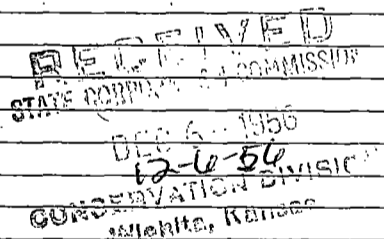 RECEIVED
STATE CORPORATION COMMISSION
DEC 6 - 1956
12-6-56
CONSERVATION DIVISION
Wichita, Kansas